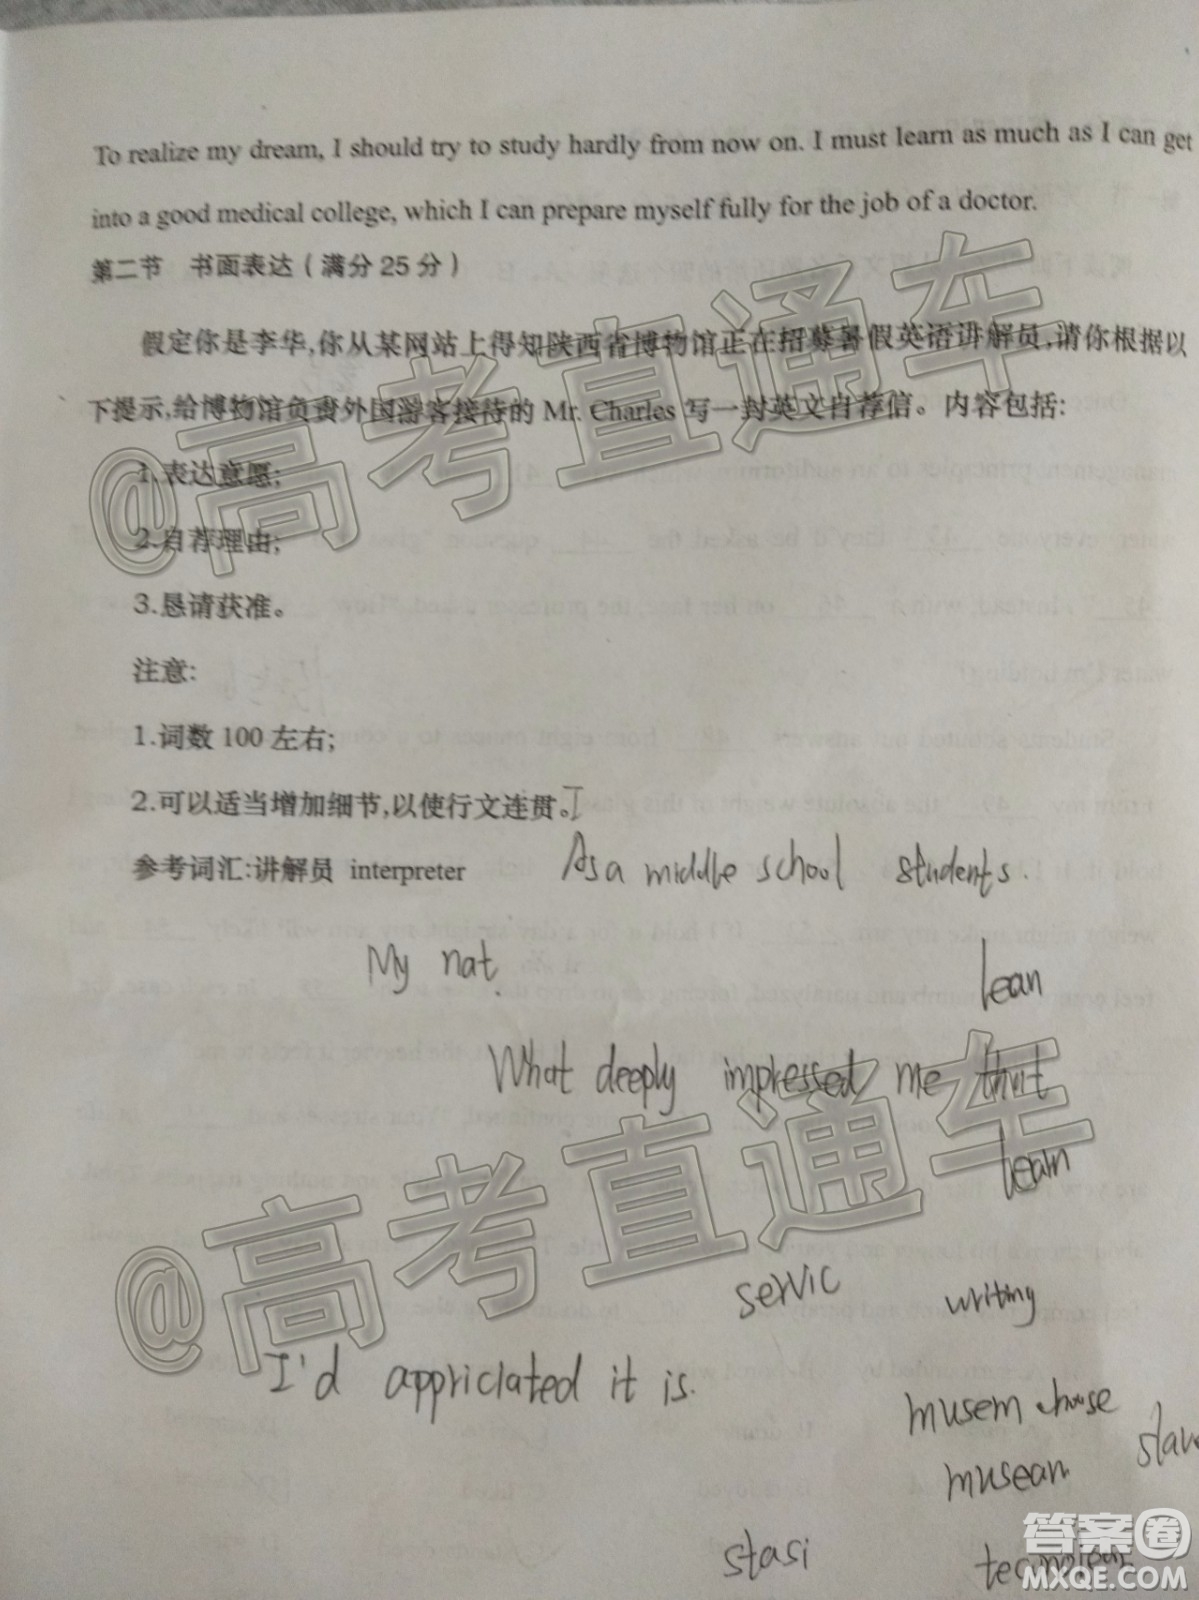 To realize my dream, I should try to study hardly from now on. I must learn as much as I can get
into a good medical college, which I can prepare myself fully for the job of a doctor.
第二节 书面表达(满分25分)
假定你是李华,你从某网站上得知陕西省博物馆正在招募暑假英语讲解员,请你根据以
下提示,给博物馆负责外国游客接待的 Mr. Charles 写一封英文自荐信。内容包括:
1.表达意愿;
2.自荐理由;
3.恳请获准。
注意:
1.词数 100 左右;
2.可以适当增加细节,以使行文连贯。I
参考词汇:讲解员 interpreter
As a middle school students.
My nat
lean
What deeply impressed me
learn
servic
writing
I'd appriclated it is.
musem house
musean
stasi
@高考直通车
@高考直通车
答案圈
MXQE.COM